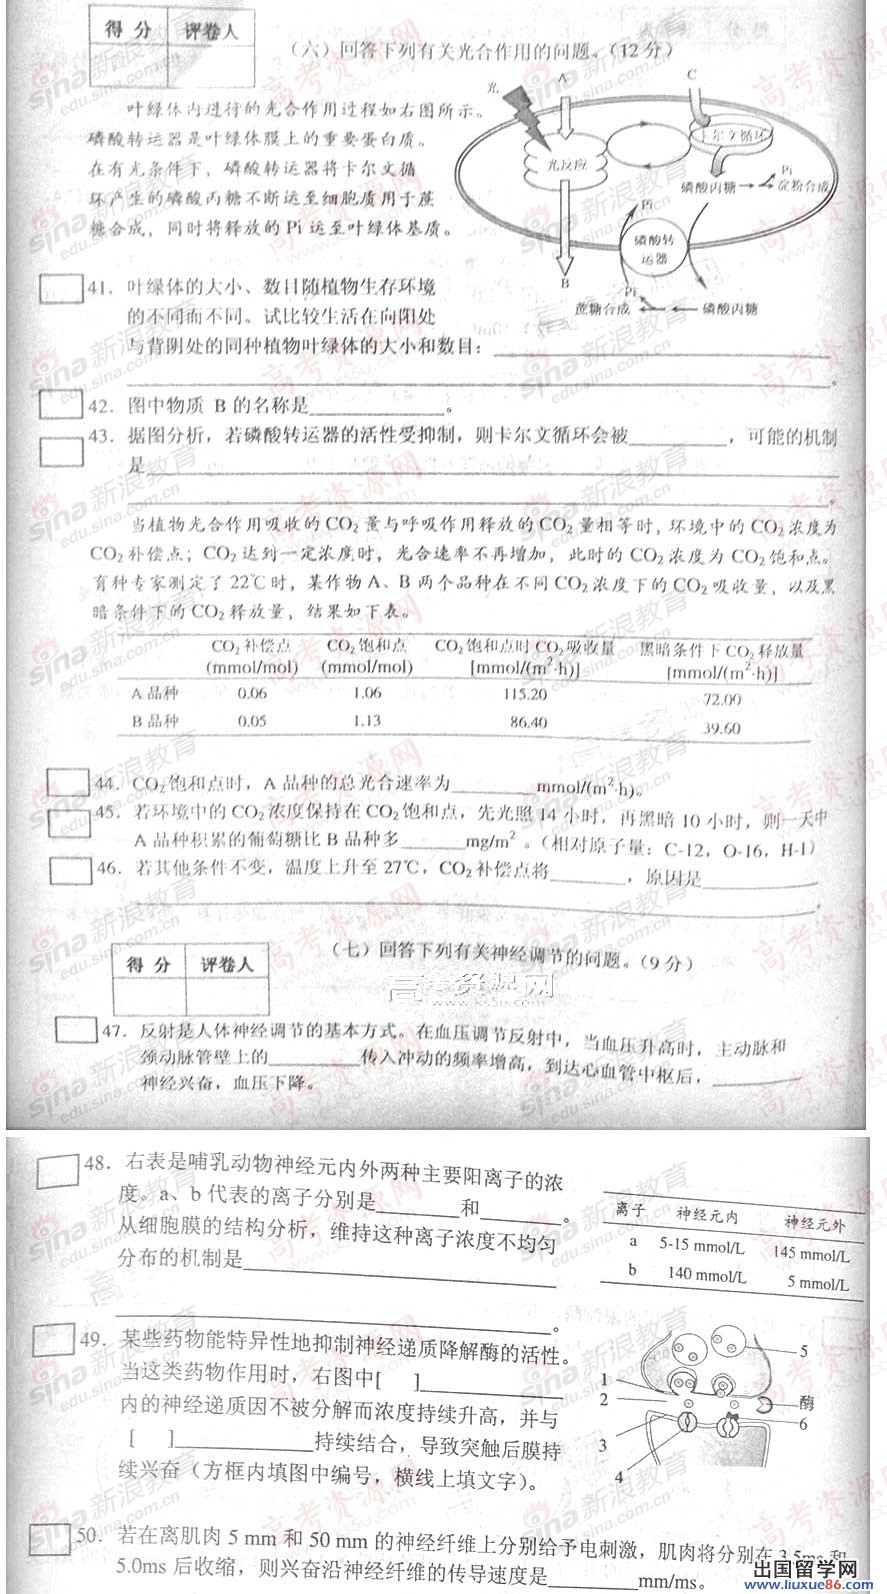 得 分 评卷人
（六）回答下列有关光合作用的问题。（12 分）
叶绿体内进行的光合作用过程如右图所示。
磷酸转运器是叶绿体膜上的重要蛋白质。
在有光条件下，磷酸转运器将卡尔文循
环产生的磷酸丙糖不断运至细胞质用于蔗
糖合成，同时将释放的 Pi 运至叶绿体基质。
光
A
C
光反应
卡尔文循环
磷酸丙糖
Pi
淀粉合成
Pi
磷酸转
运器
B
Pi
蔗糖合成
磷酸丙糖
41. 叶绿体的大小、数目随植物生存环境
的不同而不同。试比较生活在向阳处
与背阴处的同种植物叶绿体的大小和数目：
。
42. 图中物质 B 的名称是 。
43. 据图分析，若磷酸转运器的活性受抑制，则卡尔文循环会被 ，可能的机制
是
。
当植物光合作用吸收的 CO2 量与呼吸作用释放的 CO2 量相等时，环境中的 CO2 浓度为
CO2 补偿点；CO2 达到一定浓度时，光合速率不再增加，此时的 CO2 浓度为 CO2 饱和点。
育种专家测定了 22℃ 时，某作物 A、B 两个品种在不同 CO2 浓度下的 CO2 吸收量，以及黑
暗条件下的 CO2 释放量，结果如下表。
CO2 补偿点 CO2 饱和点 CO2 饱和点时 CO2 吸收量 黑暗条件下 CO2 释放量
(mmol/mol) (mmol/mol) [mmol/(m2·h)] [mmol/(m2·h)]
A 品种 0.06 1.06 115.20 72.00
B 品种 0.05 1.13 86.40 39.60
44. CO2 饱和点时，A 品种的总光合速率为 mmol/(m2·h)。
45. 若环境中的 CO2 浓度保持在 CO2 饱和点，先光照 14 小时，再黑暗 10 小时，则一天中
A 品种积累的葡萄糖比 B 品种多 mg/m2 。（相对原子量：C-12，O-16，H-1）
46. 若其他条件不变，温度上升至 27℃，CO2 补偿点将 ，原因是
。
得 分 评卷人
（七）回答下列有关神经调节的问题。（9 分）
47. 反射是人体神经调节的基本方式。在血压调节反射中，当血压升高时，主动脉和
颈动脉管壁上的 传入冲动的频率增高，到达心血管中枢后，
神经兴奋，血压下降。
48. 右表是哺乳动物神经元内外两种主要阳离子的浓
度。a、b 代表的离子分别是 和 。
从细胞膜的结构分析，维持这种离子浓度不均匀
分布的机制是
。
离子 神经元内 神经元外
a 5-15 mmol/L 145 mmol/L
b 140 mmol/L 5 mmol/L
49. 某些药物能特异性地抑制神经递质降解酶的活性。
当这类药物作用时，右图中[ ]
内的神经递质因不被分解而浓度持续升高，并与
[ ] 持续结合，导致突触后膜持
续兴奋（方框内填图中编号，横线上填文字）。
1
2
3
4
5
酶
6
50. 若在离肌肉 5 mm 和 50 mm 的神经纤维上分别给予电刺激，肌肉将分别在 3.5ms 和
5.0ms 后收缩，则兴奋沿神经纤维的传导速度是 mm/ms。
新浪教育
edu.sina.com.cn
高考资源网
www.ks5u.com
出国留学网
www.liuxue86.com